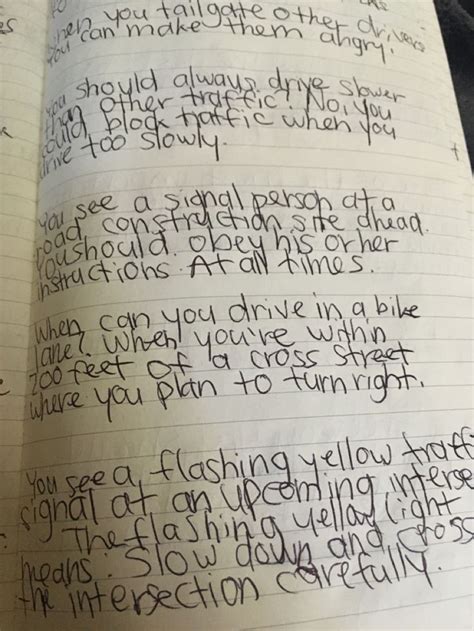 when you tailgate other drivers
you can make them angry.
you should always drive slower
than other traffic? No, you
could block traffic when you
drive too slowly.
You see a signal person at a
road construction site ahead.
You should. obey his or her
instructions. At all times.
When can you drive in a bike
lane? When you're within
200 feet of a cross street
where you plan to turn right.
You see a flashing yellow traff
signal at an upcoming interse
The flashing yellow light
means. Slow down and cross
the intersection carefully.